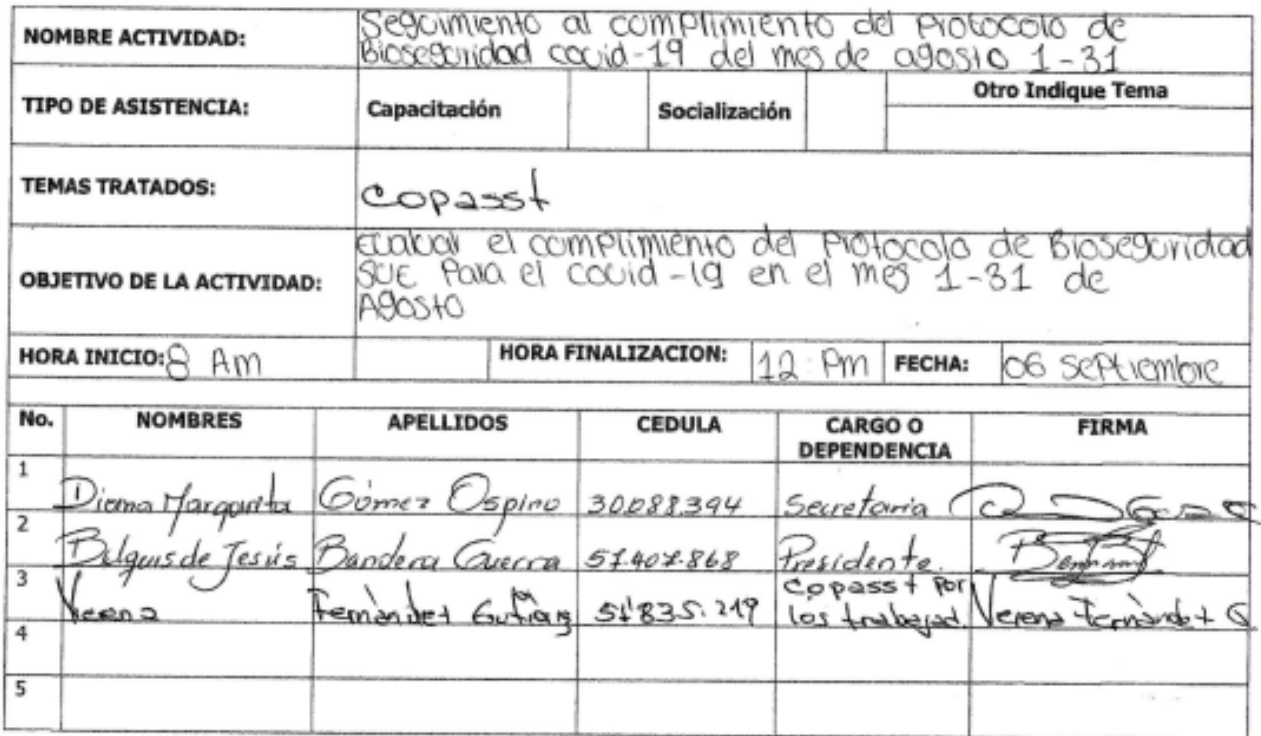 NOMBRE ACTIVIDAD: Seguimiento al cumplimiento del Protocolo de
Bioseguridad covid-19 del mes de agosto 1-31
TIPO DE ASISTENCIA: Capacitación Socialización Otro Indique Tema
TEMAS TRATADOS: Copasst
OBJETIVO DE LA ACTIVIDAD: Evaluar el cumplimiento del Protocolo de Bioseguridad
SUE Para el covid-19 en el mes 1-31 de
Agosto
HORA INICIO: 8 Am HORA FINALIZACION: 12: Pm FECHA: 06 septiembre
No. NOMBRES APELLIDOS CEDULA CARGO O DEPENDENCIA FIRMA
1 Diana Margarita Gómez Ospino 30088394 Secretaria
2 de Jesús Bandera Guerra 57.407.868 Presidente.
3 Fernández 51'835.219 Copasst por
los trabajad. Verena Fernández G
4
5